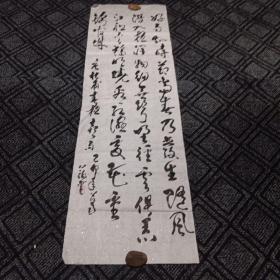 好雨知時節當春乃發生隨風
潛入夜潤物細無聲野徑雲俱黑
江船火獨明曉看紅濕處花重
錦官城